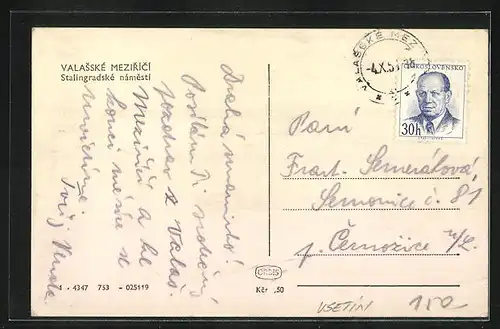 VALAŠSKÉ MEZIŘÍČÍ
Stalingradské náměstí
Drahá maminko!
Posílám Ti srdečný
pozdrav z Valaš.
Meziříčí a ke
konci měsíce se
uvidíme
Tvůj Venda
7 - 4347 753 - 025119
ORBIS
Kčs ,50
VALAŠSKÉ MEZ
-4.X.5
ČESKOSLOVENSKO
30h
Paní
Frant. Semerálová,
Semonice č. 81
p. Černožice n/L.
VSETÍN
150